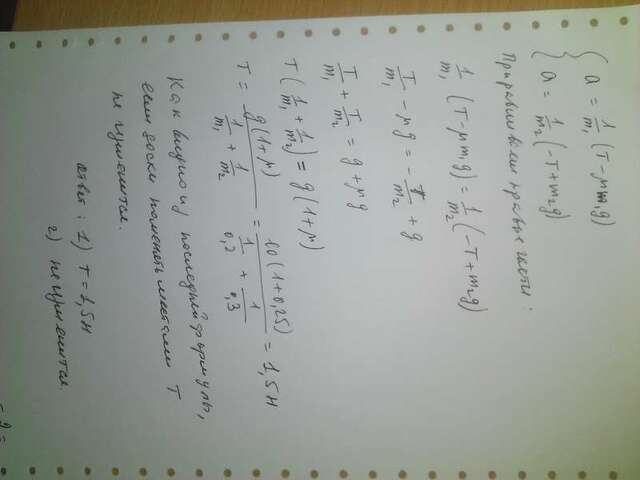 a = 1/m₁ (T - μm₁g)
a = 1/m₂ (-T + m₂g)
Приравниваем правые части:
1/m₁ (T - μm₁g) = 1/m₂ (-T + m₂g)
T/m₁ - μg = - T/m₂ + g
T/m₁ + T/m₂ = g + μg
T (1/m₁ + 1/m₂) = g (1 + μ)
T = g(1+μ) / (1/m₁ + 1/m₂) = 10(1+0,25) / (1/0,2 + 1/0,3) = 1,5 Н
Как видно из последней формулы,
если доски поменять местами T
не изменится.
Ответ: 1) T = 1,5 Н
2) не изменится.